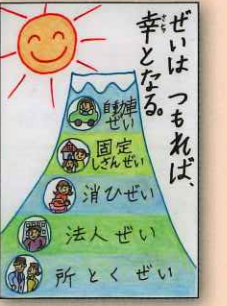 ぜいは つもれば、
幸となる。
さち
自動車
ぜい
固定
しさんぜい
消ひぜい
法人ぜい
所とくぜい